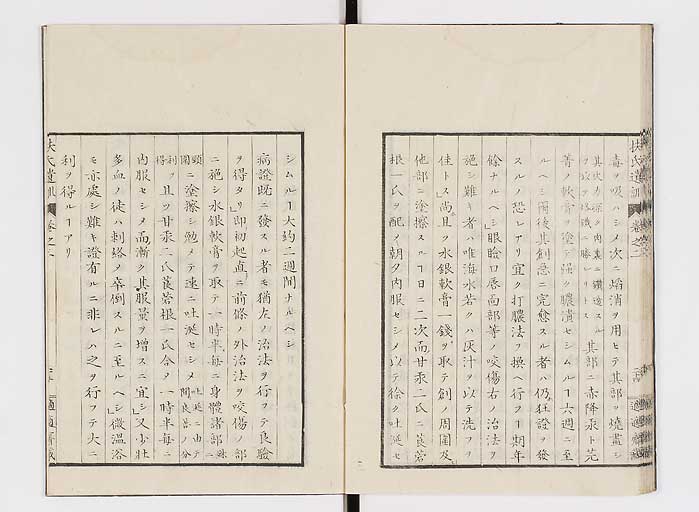 毒ヲ吸ハシメ次ニ焔消ヲ用ヒテ其部ヲ燒盡シ
其部ニ赤降汞ト芫
菁ノ軟膏ヲ塗テ強ク膿潰セシムルヿ六週ニ至
ルヘシ爾後其創悉ニ完愈スル者ハ仍狂證ヲ發
スルノ恐レアリ宜ク打膿法ヲ換ヘ行フヿ期年
餘ナルヘシ」眼瞼口唇尚部等ノ咬傷右ノ治法ヲ
施シ難キ者ハ唯海水若クハ灰汁ヲ以テ洗フヲ
佳トス」尚且ツ水銀軟膏一錢ヲ取テ創ノ周圍及
他部ニ塗擦スルヿ日ニ二次而甘汞二氏ニ莨菪
根一氏ヲ配ノ朝夕内服セシメ以テ徐ク吐涎セ
シムルヿ大約二週間ナルヘシ
病證既ニ發スル者モ猶左ノ治法ヲ行フテ良驗
ヲ得タリ」即初起直ニ前條ノ外治法ヲ咬傷ノ部
ニ施シ水銀軟膏ヲ取テ一時半毎ニ身體諸部
ニ塗擦シ勉メテ速ニ吐涎セシメ
且ツ甘汞二氏莨菪根一氏合ノ一時半毎ニ
内服セシメ而漸ク其服量ヲ增スニ宜シ」又少壯
多血ノ徒ハ刺絡ノ卒倒スルニ至ルヘシ」微溫浴
モ亦處シ難キ證有ルニ非レハ之ヲ行フテ大ニ
利ヲ得ルヿアリ
扶氏遺訓
卷之二